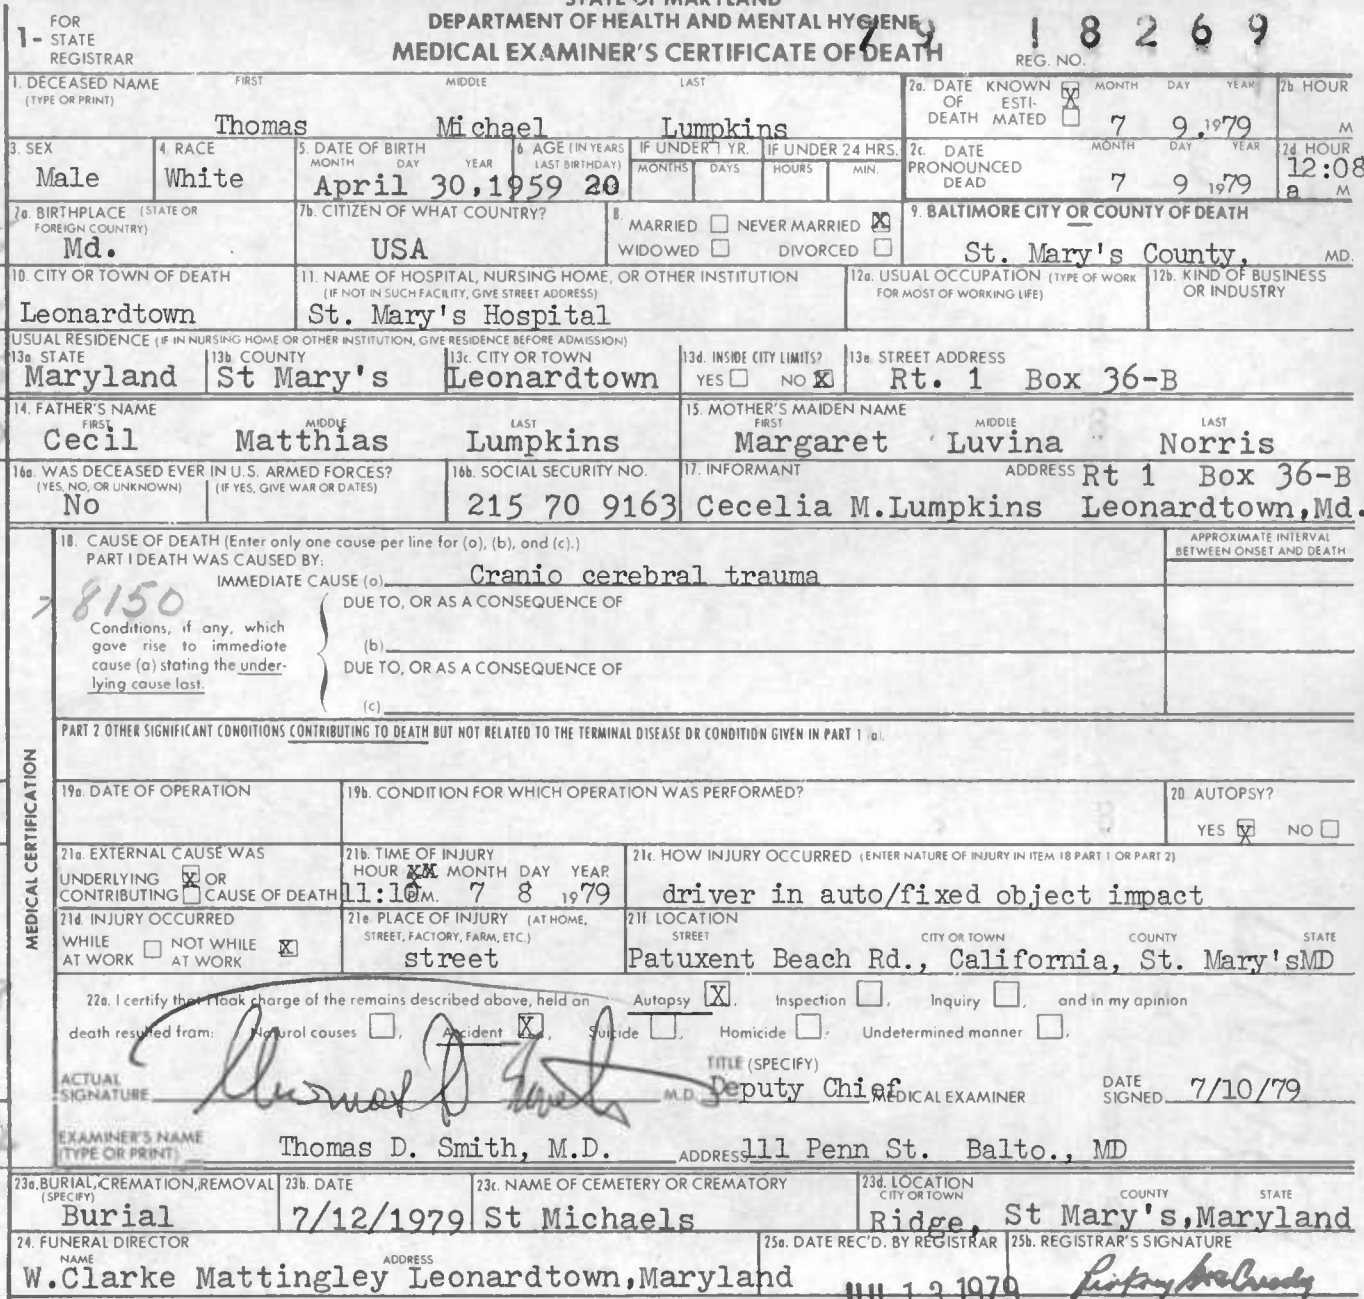 STATE OF MARYLAND
DEPARTMENT OF HEALTH AND MENTAL HYGIENE
MEDICAL EXAMINER'S CERTIFICATE OF DEATH
1- FOR STATE REGISTRAR
79 18269
REG. NO.
1. DECEASED NAME (TYPE OR PRINT) FIRST MIDDLE LAST
Thomas Michael Lumpkins
2a. DATE OF DEATH KNOWN X ESTIMATED MONTH DAY YEAR 2b HOUR
7 9 1979 M
3. SEX 4. RACE 5. DATE OF BIRTH MONTH DAY YEAR 6. AGE (IN YEARS LAST BIRTHDAY) IF UNDER 1 YR. MONTHS DAYS IF UNDER 24 HRS. HOURS MIN.
Male White April 30,1959 20
2c. DATE PRONOUNCED DEAD MONTH DAY YEAR 2d HOUR
7 9 1979 12:08 a M
7a. BIRTHPLACE (STATE OR FOREIGN COUNTRY) 7b. CITIZEN OF WHAT COUNTRY?
Md. USA
8. MARRIED NEVER MARRIED X
WIDOWED DIVORCED
9. BALTIMORE CITY OR COUNTY OF DEATH
St. Mary's County, MD.
10. CITY OR TOWN OF DEATH
Leonardtown
11. NAME OF HOSPITAL, NURSING HOME, OR OTHER INSTITUTION
(IF NOT IN SUCH FACILITY, GIVE STREET ADDRESS)
St. Mary's Hospital
12a. USUAL OCCUPATION (TYPE OF WORK FOR MOST OF WORKING LIFE) 12b. KIND OF BUSINESS OR INDUSTRY
USUAL RESIDENCE (IF IN NURSING HOME OR OTHER INSTITUTION, GIVE RESIDENCE BEFORE ADMISSION)
13a STATE 13b COUNTY 13c. CITY OR TOWN 13d. INSIDE CITY LIMITS? 13e. STREET ADDRESS
Maryland St Mary's Leonardtown YES NO X Rt. 1 Box 36-B
14. FATHER'S NAME FIRST MIDDLE LAST
Cecil Matthias Lumpkins
15. MOTHER'S MAIDEN NAME FIRST MIDDLE LAST
Margaret Luvina Norris
16a. WAS DECEASED EVER IN U.S. ARMED FORCES?
(YES, NO, OR UNKNOWN) (IF YES, GIVE WAR OR DATES)
No
16b. SOCIAL SECURITY NO.
215 70 9163
17. INFORMANT ADDRESS Rt 1 Box 36-B
Cecelia M.Lumpkins Leonardtown,Md.
MEDICAL CERTIFICATION
18. CAUSE OF DEATH (Enter only one cause per line for (a), (b), and (c).)
APPROXIMATE INTERVAL BETWEEN ONSET AND DEATH
PART I DEATH WAS CAUSED BY:
IMMEDIATE CAUSE (a) Cranio cerebral trauma
8150
DUE TO, OR AS A CONSEQUENCE OF
Conditions, if any, which gave rise to immediate cause (a) stating the underlying cause last.
(b)
DUE TO, OR AS A CONSEQUENCE OF
(c)
PART 2 OTHER SIGNIFICANT CONDITIONS CONTRIBUTING TO DEATH BUT NOT RELATED TO THE TERMINAL DISEASE OR CONDITION GIVEN IN PART 1 (a).
19a. DATE OF OPERATION 19b. CONDITION FOR WHICH OPERATION WAS PERFORMED? 20. AUTOPSY?
YES X NO
21a. EXTERNAL CAUSE WAS
UNDERLYING X OR
CONTRIBUTING CAUSE OF DEATH
21b. TIME OF INJURY
HOUR XX MONTH DAY YEAR
11:10 P.M. 7 8 1979
21c. HOW INJURY OCCURRED (ENTER NATURE OF INJURY IN ITEM 18 PART 1 OR PART 2)
driver in auto/fixed object impact
21d. INJURY OCCURRED
WHILE AT WORK NOT WHILE AT WORK X
21e. PLACE OF INJURY (AT HOME, STREET, FACTORY, FARM, ETC.)
street
21f. LOCATION STREET CITY OR TOWN COUNTY STATE
Patuxent Beach Rd., California, St. Mary's MD
22a. I certify that I took charge of the remains described above, held an Autopsy X, Inspection, Inquiry, and in my opinion
death resulted from: Natural causes, Accident X, Suicide, Homicide, Undetermined manner.
ACTUAL SIGNATURE Thomas D Smith M.D.
TITLE (SPECIFY) Deputy Chief MEDICAL EXAMINER
DATE SIGNED 7/10/79
EXAMINER'S NAME (TYPE OR PRINT) Thomas D. Smith, M.D. ADDRESS 111 Penn St. Balto., MD
23a. BURIAL, CREMATION, REMOVAL (SPECIFY) 23b. DATE 23c. NAME OF CEMETERY OR CREMATORY 23d. LOCATION CITY OR TOWN COUNTY STATE
Burial 7/12/1979 St Michaels Ridge, St Mary's,Maryland
24. FUNERAL DIRECTOR NAME ADDRESS
W.Clarke Mattingley Leonardtown,Maryland
25a. DATE REC'D. BY REGISTRAR 25b. REGISTRAR'S SIGNATURE
JUL 13 1979